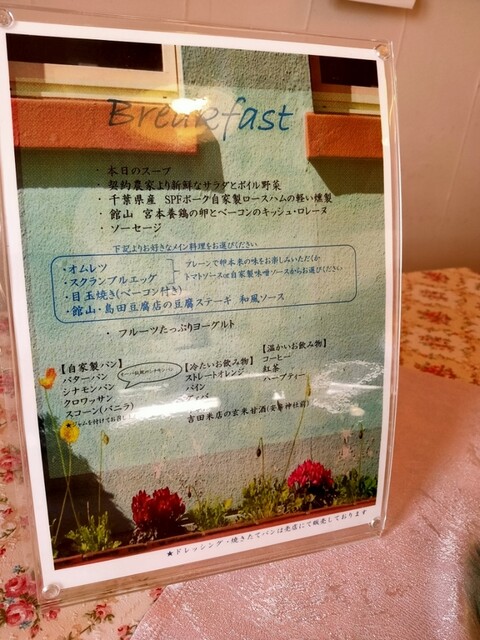 Breakfast
・本日のスープ
・契約農家より新鮮なサラダとボイル野菜
・千葉県産 SPFポーク自家製ロースハムの軽い燻製
・館山 宮本養鶏の卵とベーコンのキッシュ・ロレーヌ
・ソーセージ
下記よりお好きなメイン料理をお選びください
・オムレツ
・スクランブルエッグ
プレーンで卵本来の味をお楽しみいただくか
トマトソースor自家製味噌ソースからお選びください
・目玉焼き(ベーコン付き)
・館山・島田豆腐店の豆腐ステーキ 和風ソース
・フルーツたっぷりヨーグルト
【自家製パン】
バターパン
シナモンパン
クロワッサン
スコーン(バニラ)
ジャムを付けてお召し
【冷たいお飲み物】
ストレートオレンジ
パイン
吉田米店の玄米甘酒(安房神社前)
【温かいお飲み物】
コーヒー
紅茶
ハーブティー
★ドレッシング・焼きたてパンは売店にて販売しております